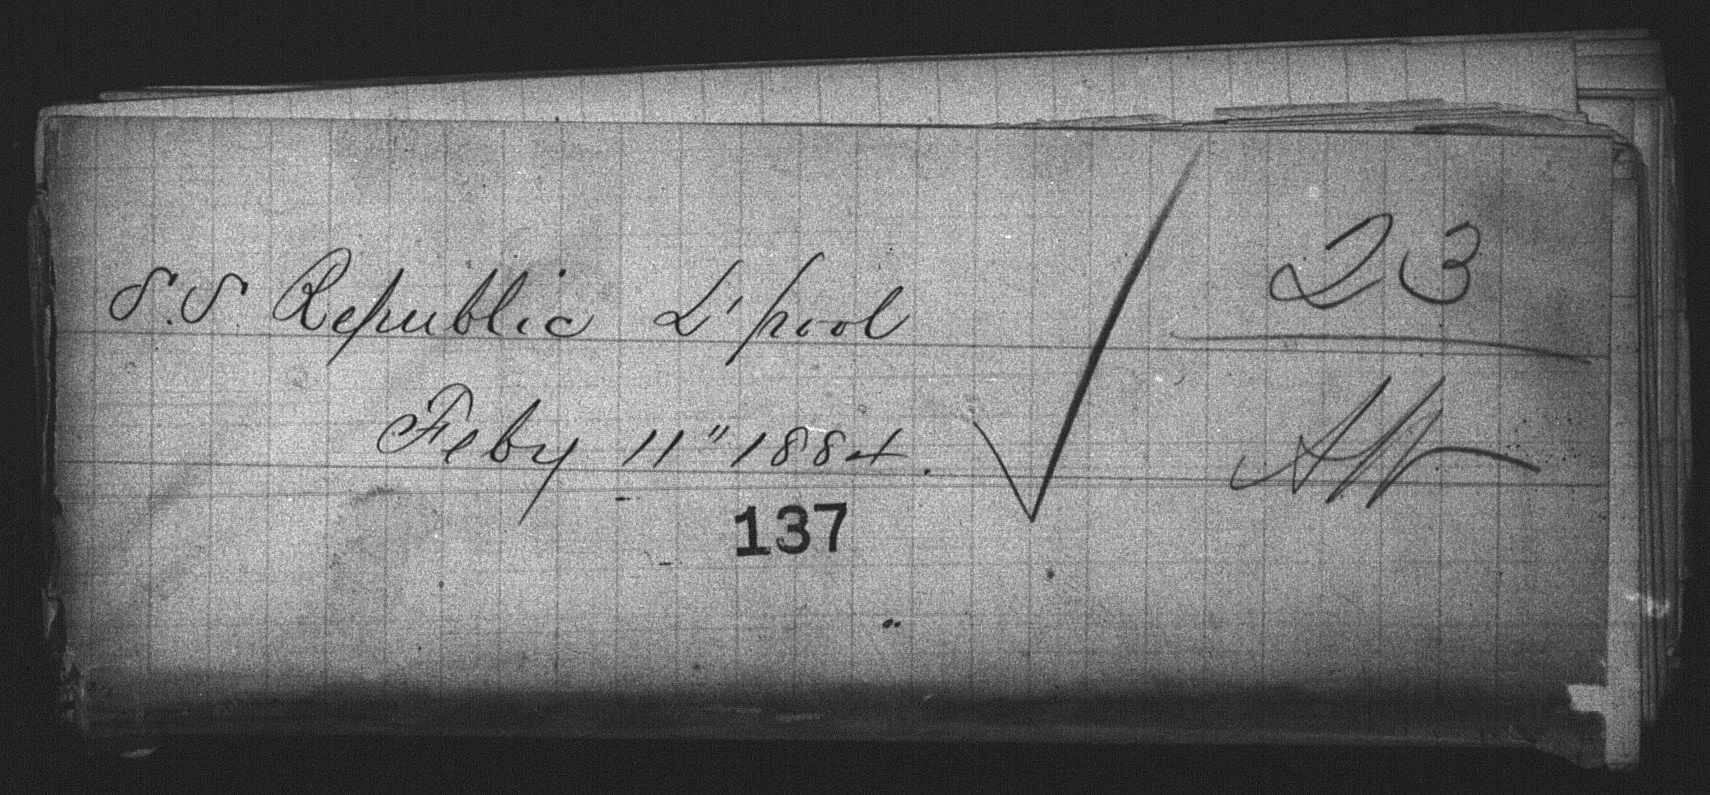 S.S. Republic L'pool
Feby 11" 1884.
137
23